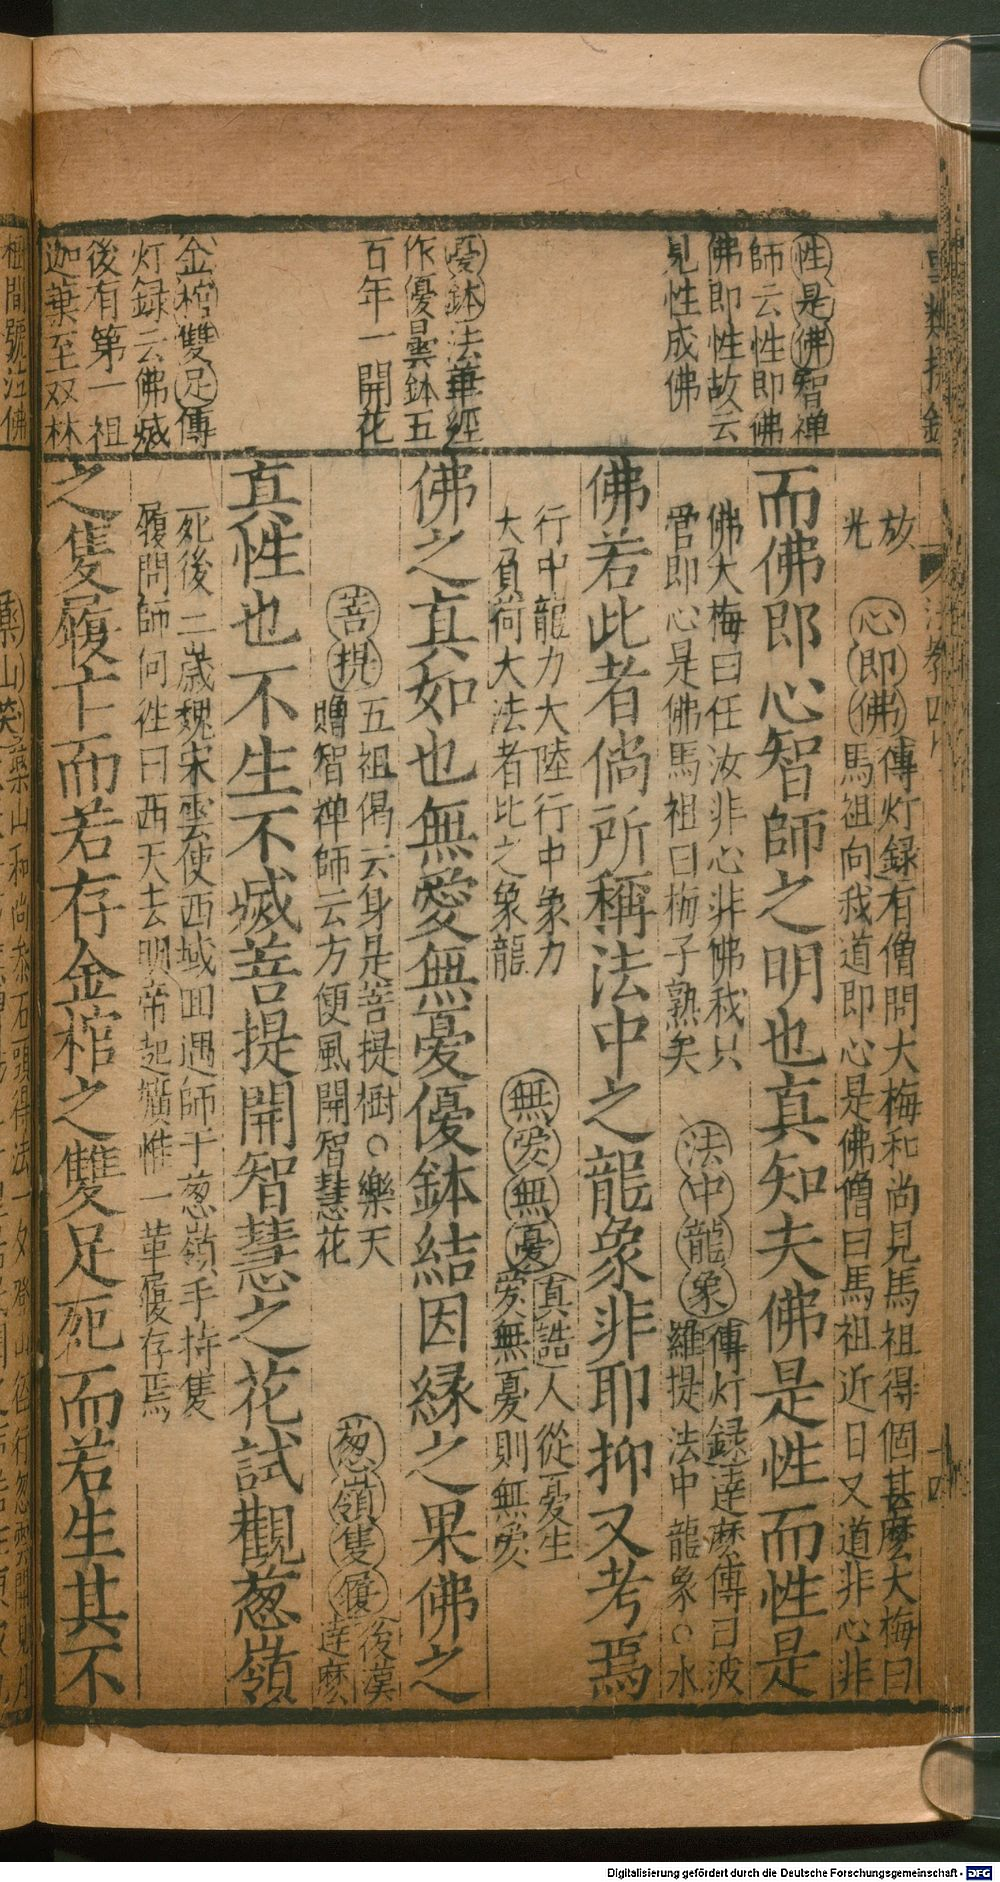 性是佛智禅
師云性即佛
佛即性故云
見性成佛
憂鉢法華經
作優曇鉢五
百年一開花
金棺雙足傳
灯録云佛滅
後有第一祖
迦葉至双林
放
光
心即佛傳灯録有僧問大梅和尚見馬祖得個甚麼大梅曰
馬祖向我道即心是佛僧曰馬祖近日又道非心非
而佛即心智師之明也真知夫佛是性而性是
佛大梅曰任汝非心非佛我只
管即心是佛馬祖曰梅子熟矣
法中龍象傳灯録達麼傳曰波
羅提法中龍象○水
佛若此者倘所稱法中之龍象非耶抑又考焉
行中龍力大陸行中象力
大負荷大法者比之象龍
無爱無憂真誥人從憂生
爱無憂則無爱
佛之真如也無愛無憂優鉢結因緣之果佛之
菩提五祖偈云身是菩提樹○樂天
贈智禅師云方便風開智慧花
葱嶺隻履後漢
達麼
真性也不生不滅菩提開智慧之花試觀葱嶺
死後二歲魏宋雲使西域囬遇師于葱嶺手持隻
履問師何徃曰西天去明帝起壙惟一革履存焉
之隻履亡而若存金棺之雙足死而若生其不
Digitalisierung gefördert durch die Deutsche Forschungsgemeinschaft - DFG